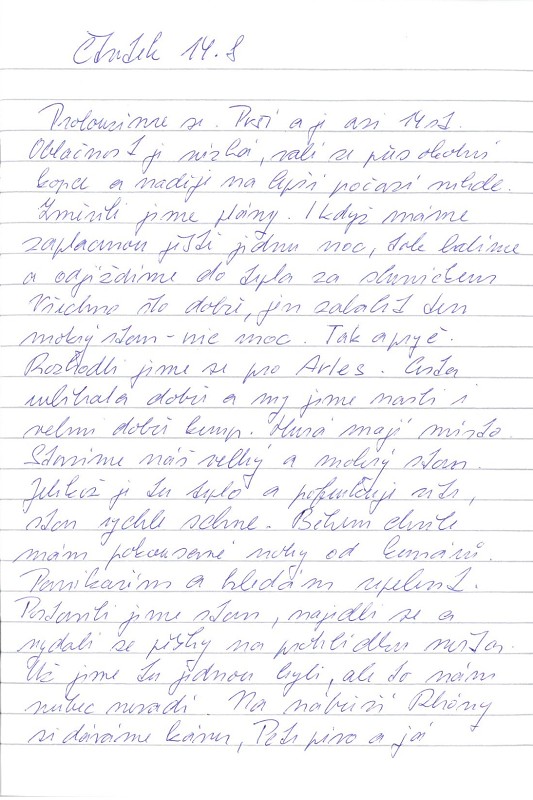 Čtvrtek 14.8
Probouzíme se. Prší a je asi 14 st.
Oblačnost je nízká, valí se přes okolní
kopce a naděje na lepší počasí nikde.
Změnili jsme plány. I když máme
zaplacenou ještě jednu noc, tak balíme
a odjíždíme do tepla za sluníčkem
Všechno šlo dobře, jen zabalit ten
mokrý stan - nic moc. Tak a pryč.
Rozhodli jsme se pro Arles. Cesta
ubíhala dobře a my jsme našli i
velmi dobře kemp. Hurá mají místo.
Stavíme náš velký a mokrý stan.
Jelikož je tu teplo a pofukuje vítr,
stan rychle schne. Během chvíle
mám pokousané nohy od komárů.
Panikařím a hledám repelent.
Postavili jsme stan, najedli se a
vydali se pěšky na prohlídku města.
Už jsme tu jednou byli, ale to nám
vůbec nevadí. Na nábřeží Rhôny
si dáváme kávu, Petr pivo a já